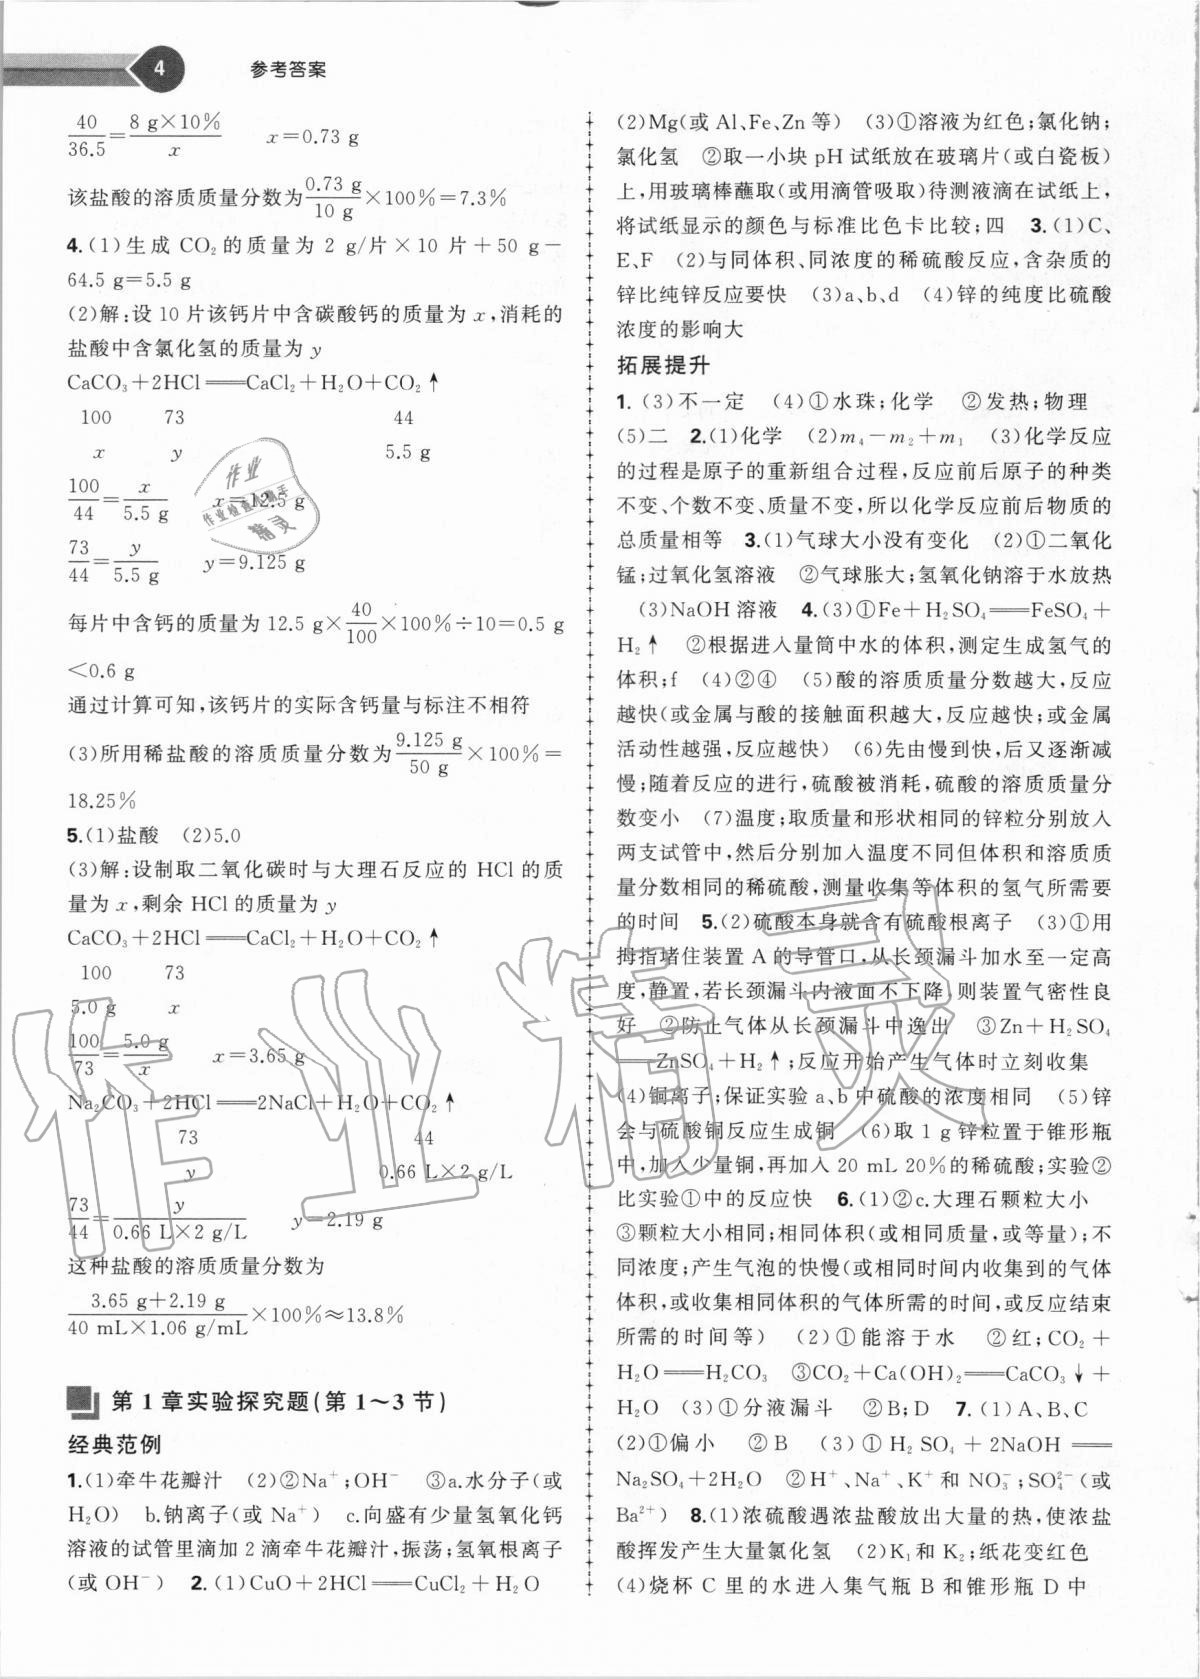 4 参考答案
40/36.5=8 g×10%/x x=0.73 g
该盐酸的溶质质量分数为0.73 g/10 g×100%=7.3%
4.(1)生成 CO₂ 的质量为 2 g/片×10 片+50 g-
64.5 g=5.5 g
(2)解:设 10 片该钙片中含碳酸钙的质量为 x,消耗的
盐酸中含氯化氢的质量为 y
CaCO₃+2HCl══CaCl₂+H₂O+CO₂↑
100 73 44
x y 5.5 g
100/44=x/5.5 g x=12.5 g
73/44=y/5.5 g y=9.125 g
每片中含钙的质量为 12.5 g×40/100×100%÷10=0.5 g
<0.6 g
通过计算可知,该钙片的实际含钙量与标注不相符
(3)所用稀盐酸的溶质质量分数为9.125 g/50 g×100%=
18.25%
5.(1)盐酸 (2)5.0
(3)解:设制取二氧化碳时与大理石反应的 HCl 的质
量为 x,剩余 HCl 的质量为 y
CaCO₃+2HCl══CaCl₂+H₂O+CO₂↑
100 73
5.0 g x
100/73=5.0 g/x x=3.65 g
Na₂CO₃+2HCl══2NaCl+H₂O+CO₂↑
73 44
y 0.66 L×2 g/L
73/44=y/0.66 L×2 g/L y=2.19 g
这种盐酸的溶质质量分数为
3.65 g+2.19 g/40 mL×1.06 g/mL×100%≈13.8%
第 1 章实验探究题(第 1~3 节)
经典范例
1.(1)牵牛花瓣汁 (2)②Na⁺;OH⁻ ③a.水分子(或
H₂O) b.钠离子(或 Na⁺) c.向盛有少量氢氧化钙
溶液的试管里滴加 2 滴牵牛花瓣汁,振荡;氢氧根离子
(或 OH⁻) 2.(1)CuO+2HCl══CuCl₂+H₂O
(2)Mg(或 Al、Fe、Zn 等) (3)①溶液为红色;氯化钠;
氯化氢 ②取一小块 pH 试纸放在玻璃片(或白瓷板)
上,用玻璃棒蘸取(或用滴管吸取)待测液滴在试纸上,
将试纸显示的颜色与标准比色卡比较;四 3.(1)C、
E、F (2)与同体积、同浓度的稀硫酸反应,含杂质的
锌比纯锌反应要快 (3)a、b、d (4)锌的纯度比硫酸
浓度的影响大
拓展提升
1.(3)不一定 (4)①水珠;化学 ②发热;物理
(5)二 2.(1)化学 (2)m₄-m₂+m₁ (3)化学反应
的过程是原子的重新组合过程,反应前后原子的种类
不变、个数不变、质量不变,所以化学反应前后物质的
总质量相等 3.(1)气球大小没有变化 (2)①二氧化
锰;过氧化氢溶液 ②气球胀大;氢氧化钠溶于水放热
(3)NaOH 溶液 4.(3)①Fe+H₂SO₄══FeSO₄+
H₂↑ ②根据进入量筒中水的体积,测定生成氢气的
体积;f (4)②④ (5)酸的溶质质量分数越大,反应
越快(或金属与酸的接触面积越大,反应越快;或金属
活动性越强,反应越快) (6)先由慢到快,后又逐渐减
慢;随着反应的进行,硫酸被消耗,硫酸的溶质质量分
数变小 (7)温度;取质量和形状相同的锌粒分别放入
两支试管中,然后分别加入温度不同但体积和溶质质
量分数相同的稀硫酸,测量收集等体积的氢气所需要
的时间 5.(2)硫酸本身就含有硫酸根离子 (3)①用
拇指堵住装置 A 的导管口,从长颈漏斗加水至一定高
度,静置,若长颈漏斗内液面不下降,则装置气密性良
好 ②防止气体从长颈漏斗中逸出 ③Zn+H₂SO₄
══ZnSO₄+H₂↑;反应开始产生气体时立刻收集
(4)铜离子;保证实验 a、b 中硫酸的浓度相同 (5)锌
会与硫酸铜反应生成铜 (6)取 1 g 锌粒置于锥形瓶
中,加入少量铜,再加入 20 mL 20%的稀硫酸;实验②
比实验①中的反应快 6.(1)②c.大理石颗粒大小
③颗粒大小相同;相同体积(或相同质量,或等量);不
同浓度;产生气泡的快慢(或相同时间内收集到的气体
体积,或收集相同体积的气体所需的时间,或反应结束
所需的时间等) (2)①能溶于水 ②红;CO₂+
H₂O══H₂CO₃ ③CO₂+Ca(OH)₂══CaCO₃↓+
H₂O (3)①分液漏斗 ②B;D 7.(1)A、B、C
(2)①偏小 ②B (3)①H₂SO₄+2NaOH══
Na₂SO₄+2H₂O ②H⁺、Na⁺、K⁺ 和 NO₃⁻;SO₄²⁻(或
Ba²⁺) 8.(1)浓硫酸遇浓盐酸放出大量的热,使浓盐
酸挥发产生大量氯化氢 (2)K₁ 和 K₂;纸花变红色
(4)烧杯 C 里的水进入集气瓶 B 和锥形瓶 D 中
作业精灵